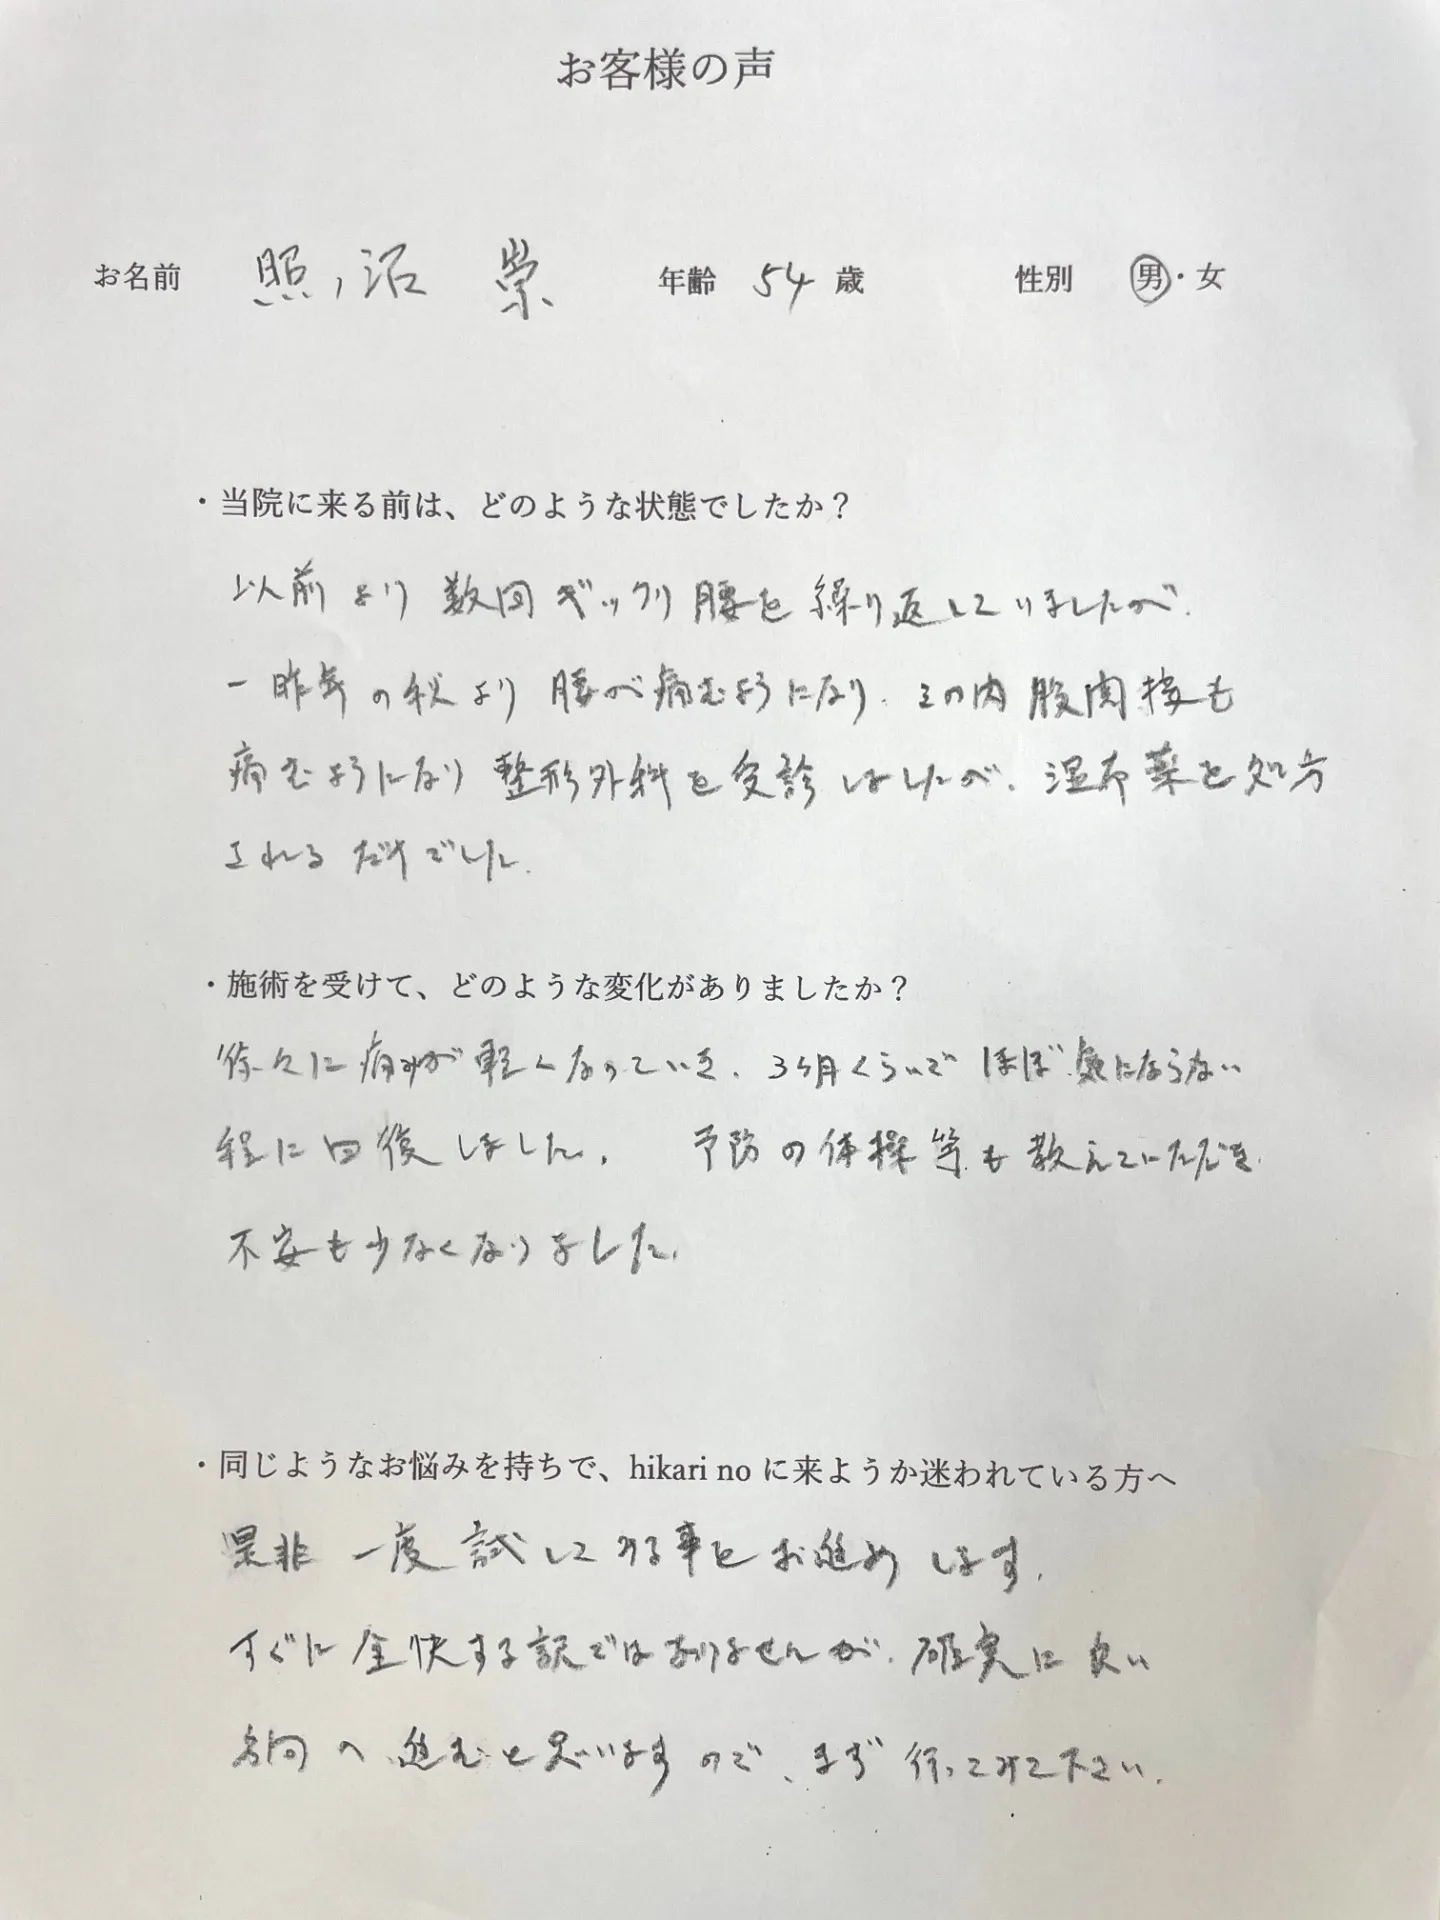 お客様の声
お名前 照沼 崇 年齢 54 歳 性別 男・女
・当院に来る前は、どのような状態でしたか？
以前より数回ギックリ腰を繰り返していましたが、
一昨年の秋より腰が痛むようになり、その内股関接も
痛むようになり整形外科を受診しましたが、湿布薬を処方
されるだけでした。
・施術を受けて、どのような変化がありましたか？
徐々に痛みが軽くなっていき、3ヶ月くらいでほぼ気にならない
程に回復しました。 予防の体操等も教えていただき、
不安も少なくなりました。
・同じようなお悩みを持ちで、hikari no に来ようか迷われている方へ
是非一度試してみる事をお進めします。
すぐに全快する訳ではありませんが、確実に良い
方向へ進むと思いますので、まず行ってみて下さい。